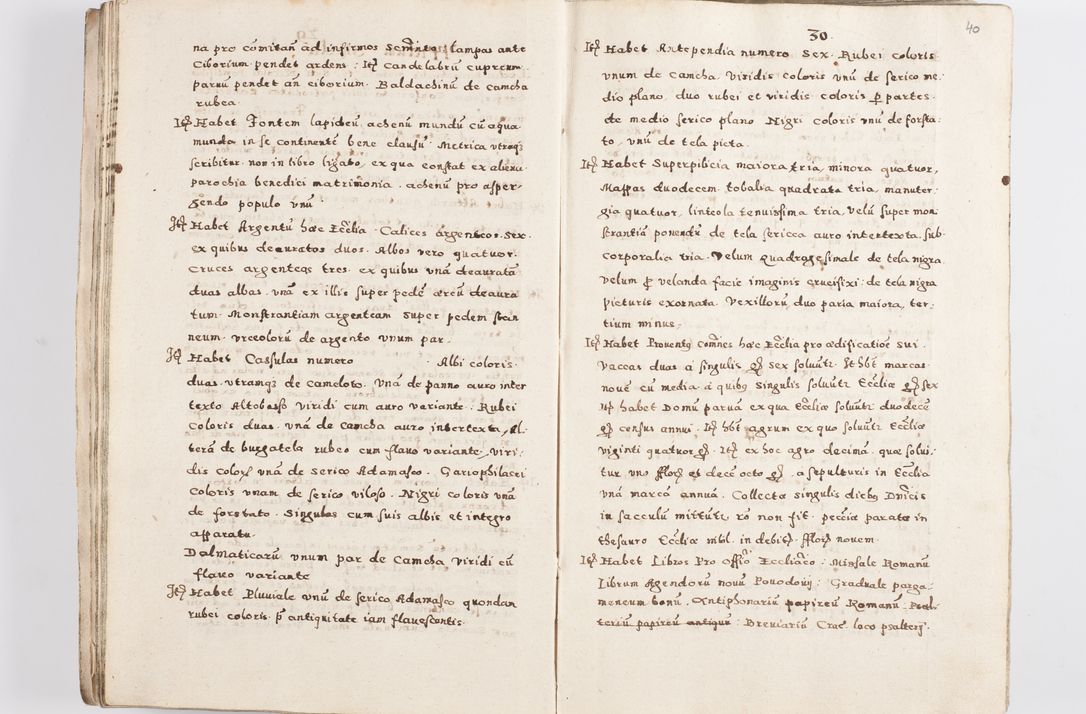 na pro comitan̄ ad infirmos lampas ante
Ciborium pendet ardens : Itē Candelabrū cupreum
paruū pendet an̄ ciborium . Baldachinū de camcha
rubea .
Itē Habet Fontem lapideū , achenū mundū cū aqua
munda in se continentē bene clausū . Metrica utraqȝ
scribitur . non in libro ligato , ex qua constat ex aliena
parochia benedici matrimonia . achenū pro asper-
gendo populo vnū
Itē Habet Argentū hæc Eccl̄ia . Calices argenteos Sex .
ex quibus deauratos duos . Albos vero quatuor .
Cruces argenteas tres . ex quibus vnā deauratā
duas albas . vnā ex illis super pedē æreū deaura
tum . Monstrantiam argenteam super pedem stan
neum . vrceolorū de argento vnum par .
Itē Habet Cassulas numero Albi coloris
duas . vtramqȝ de cameloto . Vnā de panno auro inter
texto Altobasso viridi cum auro variante . Rubei
Coloris duas . vnā de Camcha auro intertexta , Al-
terā de burgatela rubeo cum flauo variante , viri-
dis colorȝ vnā de serico Adamasco . Gariophilacei
Coloris vnam de serico viloso . Nigri coloris vnā
de forstato . Singulas cum suis albis et integro
apparatu .
Dalmaticarū vnum par de Camcha viridi cū
flaueo variante
Itē Habet Pluuiale vnū de serico Adamasco quondan
rubei coloris . p̄ antiquitate iam flauescentis .
30 .
40
Itē Habet Antependia numero Sex . Rubei coloris
vnum de Camcha , viridis coloris vnū de serico me-
dio plano , duo rubei et viridis coloris p̱ partes .
de medio serico plano Nigri coloris vnū de forsta-
to , vnū de tela picta .
Itē Habet Superpilicia maiora tria , minora quatuor ,
Mappas duodecem , tobalia quadrata tria , manuter-
gia quatuor , linteola tenuissima tria , velū super mon
strantiā ponendū de tela sericea auro intertexta , sub
corporalia tria . Velum Quadragesimale de tela nigra
velum p̄ velanda facie imaginis crucifixi : de tela nigra
picturis exornata . Vexillorū duo paria maiora , ter-
tium minus .
Itē Habet Prouentȝ com̄nes hæc Eccl̄ia pro ædificatiōe sui .
Vaccas duas a singulis gȝ sex soluūtr . Et hb̄t marcas
nouē cū media a quibȝ singulis soluūtr Eccl̄iæ gȝ sex
Itē habet Domū paruā ex qua Eccl̄iæ soluūtr duodecē
gȝ census annui . Itē hb̄t agrum ex quo soluūtr Eccl̄iæ
viginti quatuor gȝ . Itē ex hoc agro decimā , quæ solui-
tur vno fflorȝ et decē octo gȝ . a sepulturis in Eccl̄ia
vnā marcā annuā . Collecta singulis diebȝ Dn̄icis
in sacculū mittūtr rō non fit . pecūia parata in
thesauro Eccl̄iæ nihil . in debitȝ fflorȝ nouem .
Itē Habet Libros Pro Offōi Eccliāco : Missale Romanū
Librum Agendorū nouū Powodowij : Graduale parga-
meneum bonū . Antiphonariū papireū Romanū . Psal-
teriū papireū antiquū : Breuiariū Crac̄ . loco psalterij .